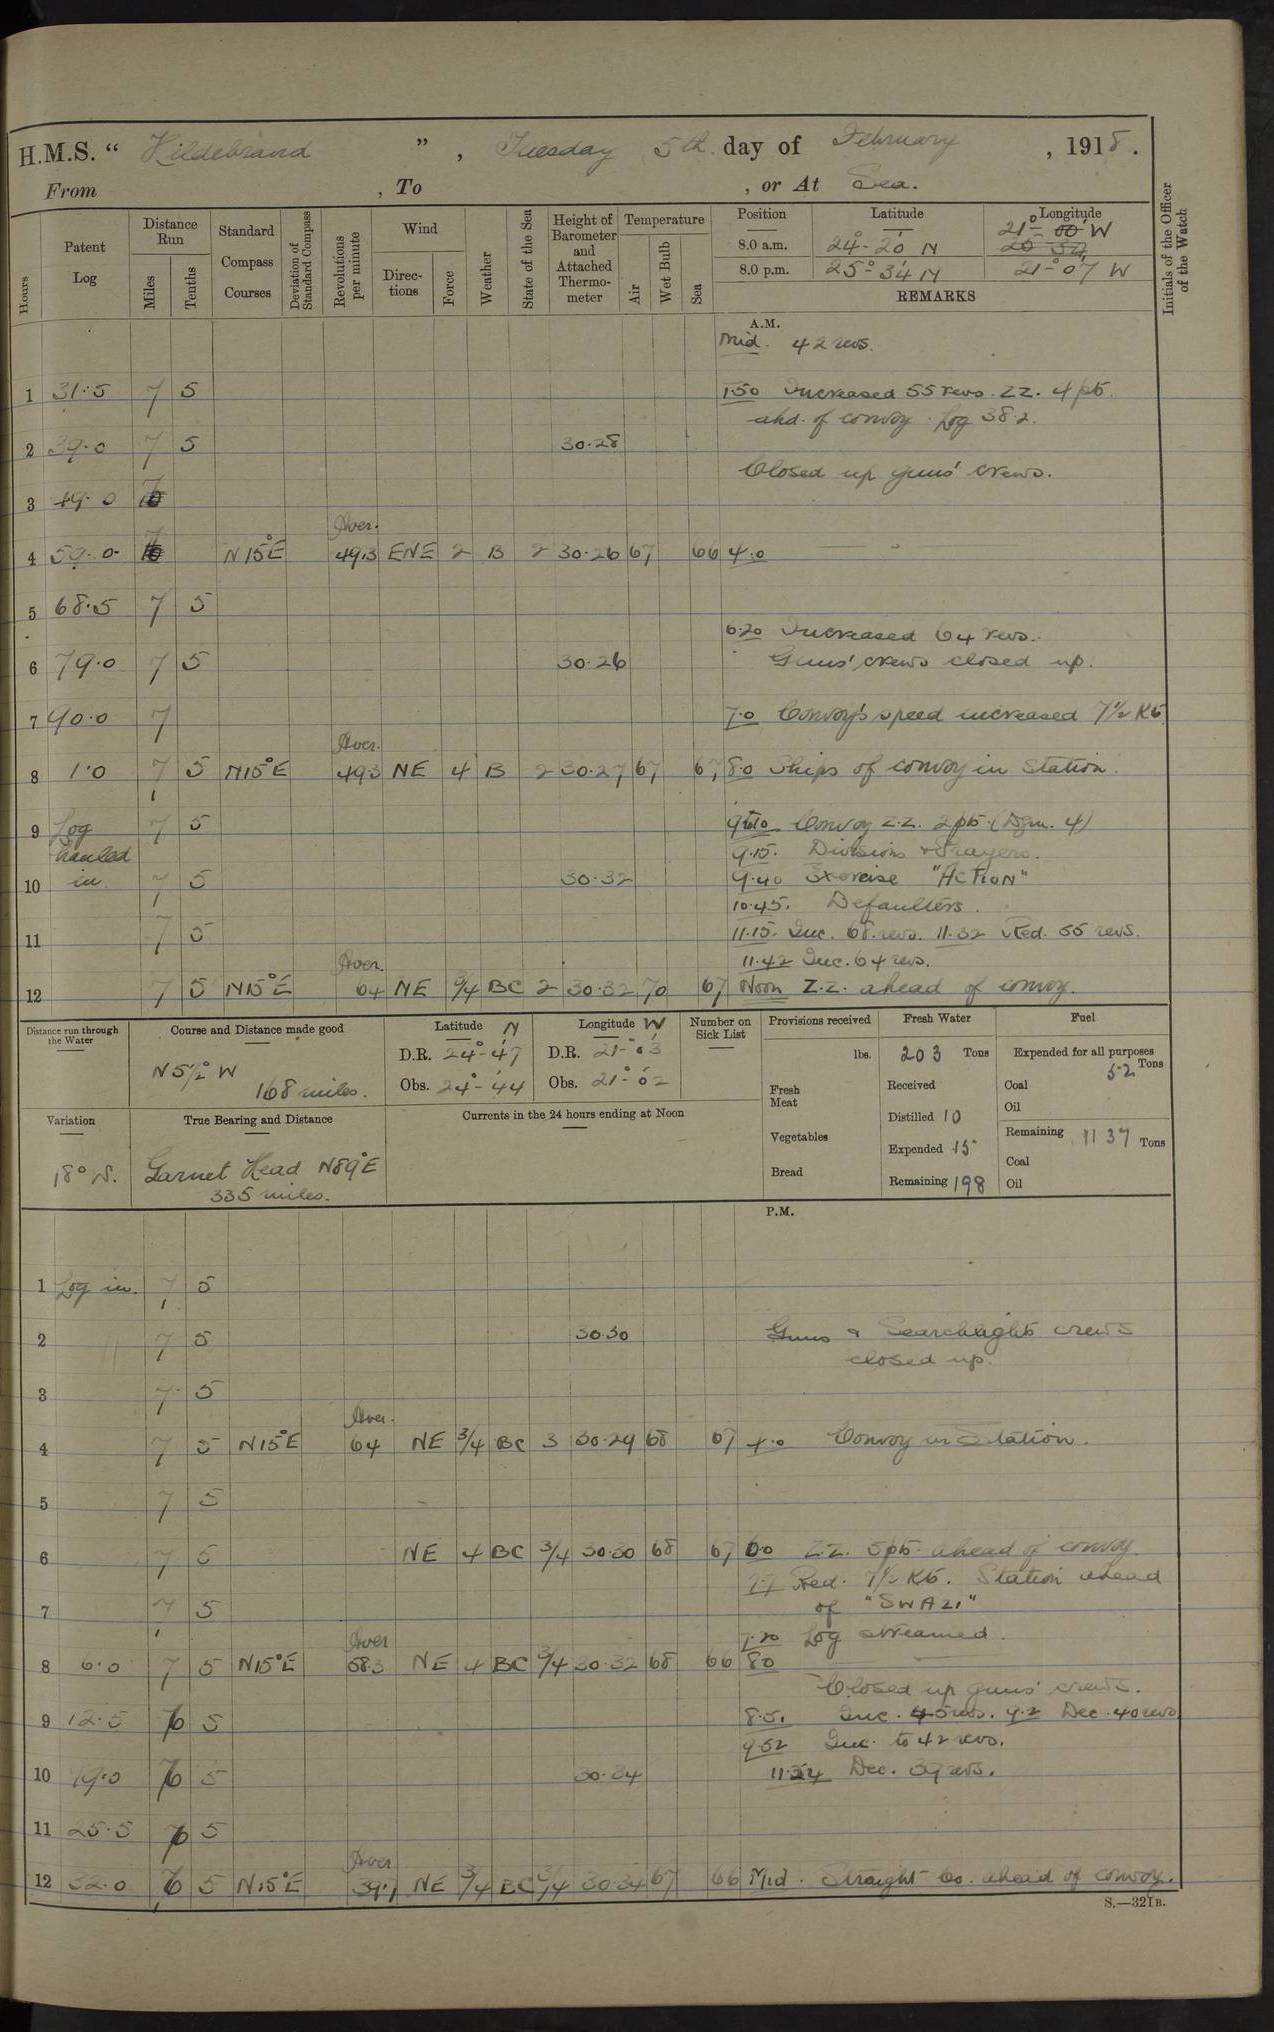 H.M.S. “ Hildebrand ” , Tuesday 5th day of February , 1918.
From , To , or At Sea.
Hours
Patent Log
Distance Run
Miles
Tenths
Standard Compass Courses
Deviation of Standard Compass
Revolutions per minute
Wind
Directions
Force
Weather
State of the Sea
Height of Barometer and Attached Thermometer
Temperature
Air
Wet Bulb
Sea
Position Latitude Longitude
8.0 a.m. 24°-20' N 21°-00' W
20 34
8.0 p.m. 25°-34' N 21°-07' W
REMARKS
Initials of the Officer of the Watch
A.M.
Mid. 42 revs.
1 31.5 7 5 1.50 Increased 55 revs. ZZ. 4 pts.
ahd. of convoy. Log 38.2.
2 39.0 7 5 30.28
Closed up guns' crews.
3 49.0 7
Aver.
4 59.0 7 N15°E 49.3 ENE 2 B 2 30.26 67 66 4.0
5 68.5 7 5
6.20 Increased 64 revs.
6 79.0 7 5 30.26 Guns' crews closed up.
7 90.0 7 7.0 Convoy's speed increased 7½ Kts
Aver.
8 1.0 7 5 N15°E 49.3 NE 4 B 2 30.27 67 67 8.0 Ships of convoy in Station.
9 Log 7 5 Convoy Z.Z. 2 pts. (Dgm. 4)
hauled 9.15. Divisions & Prayers.
10 in. 7 5 30.32 9.40 Exercise "ACTION"
10.45. Defaulters.
11 7 5 11.15. Inc. 68 revs. 11.32 Red. 55 revs.
Aver. 11.42 Inc. 64 revs.
12 7 5 N15°E 64 NE 3/4 BC 2 30.32 70 67 Noon Z.Z. ahead of convoy.
Distance run through the Water
Course and Distance made good
N 5½° W
168 miles.
Latitude N
D.R. 24°-47'
Obs. 24°-44'
Longitude W
D.R. 21°-03'
Obs. 21°-02'
Number on Sick List
Provisions received
lbs.
Fresh Meat
Vegetables
Bread
Fresh Water
203 Tons
Received
Distilled 10
Expended 15
Remaining 198
Fuel
Expended for all purposes
52 Tons
Coal
Oil
Remaining 1137 Tons
Coal
Oil
Variation
18° W.
True Bearing and Distance
Garnet Head N89°E
335 miles.
Currents in the 24 hours ending at Noon
P.M.
1 Log in. 7 5
2 7 5 30.30 Guns & Searchlights crews
closed up.
3 7 5
Aver.
4 7 5 N15°E 64 NE 3/4 BC 3 30.29 68 67 4.0 Convoy in Station.
5 7 5
6 7 5 NE 4 BC 3/4 30.30 68 67 6.0 Z.Z. 5 pts. ahead of convoy.
7.7 Red. 7½ Kts. Station ahead
7 7 5 of "SWAZI"
Aver 7.20 Log streamed.
8 6.0 7 5 N15°E 58.3 NE 4 BC 3/4 30.32 68 66 8.0
Closed up guns' crews.
9 12.5 6 5 8.5. Inc. 45 revs. 9.2 Dec. 40 revs
9.52 Inc. to 42 revs.
10 19.0 6 5 30.34 11.34 Dec. 39 revs.
11 25.5 6 5
Aver
12 32.0 6 5 N15°E 39.1 NE 3/4 BC 3/4 30.34 67 66 Mid. Straight Co. ahead of convoy.
S.—321B.